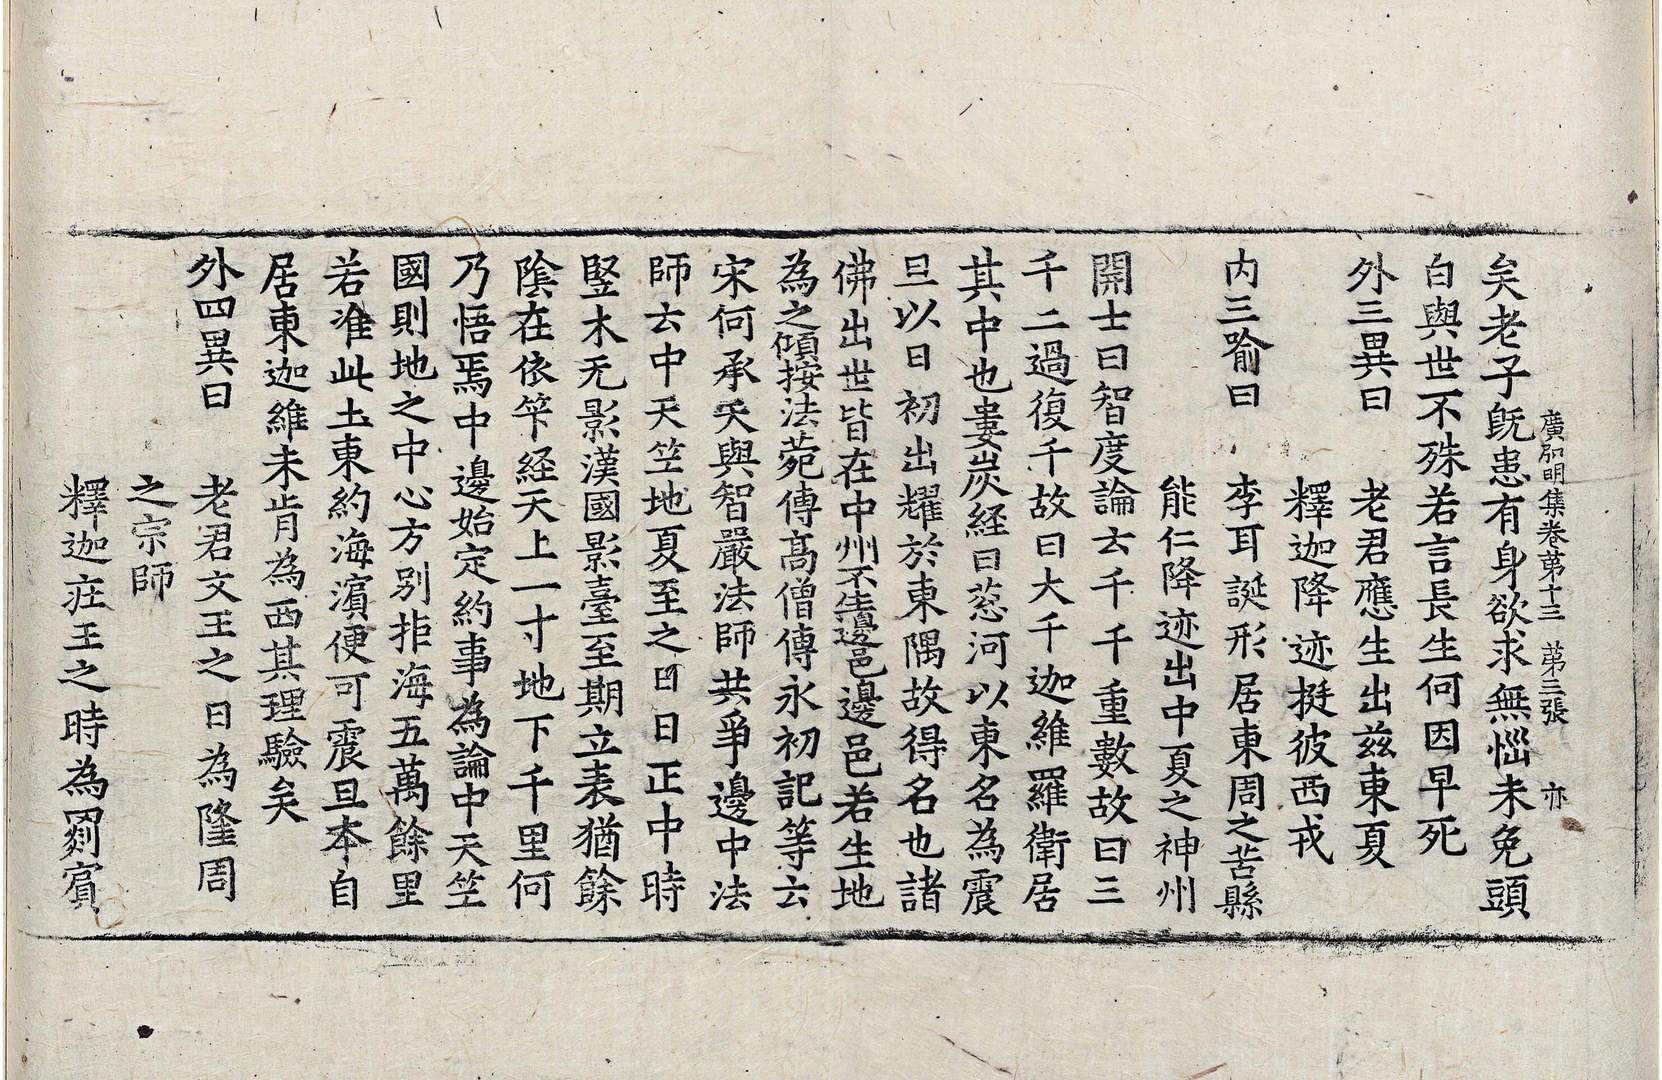 廣弘明集卷第十三 第三張 亦
矣老子旣患有身欲求無惱未免頭
白與世不殊若言長生何因早死
外三異曰 老君應生出兹東夏
釋迦降迹挺彼西戎
内三喻曰 李耳誕形居東周之苦縣
能仁降迹出中夏之神州
開士曰智度論云千千重數故曰三
千二過復千故曰大千迦維羅衛居
其中也婁炭経曰䓗河以東名為震
旦以日初出耀於東隅故得名也諸
佛出世皆在中州不生邊邑邊邑若生地
為之傾按法菀傳髙僧傳永初記等云
宋何承天與智嚴法師共爭邊中法
師云中天竺地夏至之日日正中時
竪木无影漢國影臺至期立表猶餘
陰在依笇経天上一寸地下千里何
乃悟焉中邊始定約事為論中天竺
國則地之中心方别拒海五萬餘里
若准此土東約海濵便可震旦本自
居東迦維未肯為西其理驗矣
外四異曰 老君文王之日為隆周
之宗師
釋迦庄王之時為罽賓